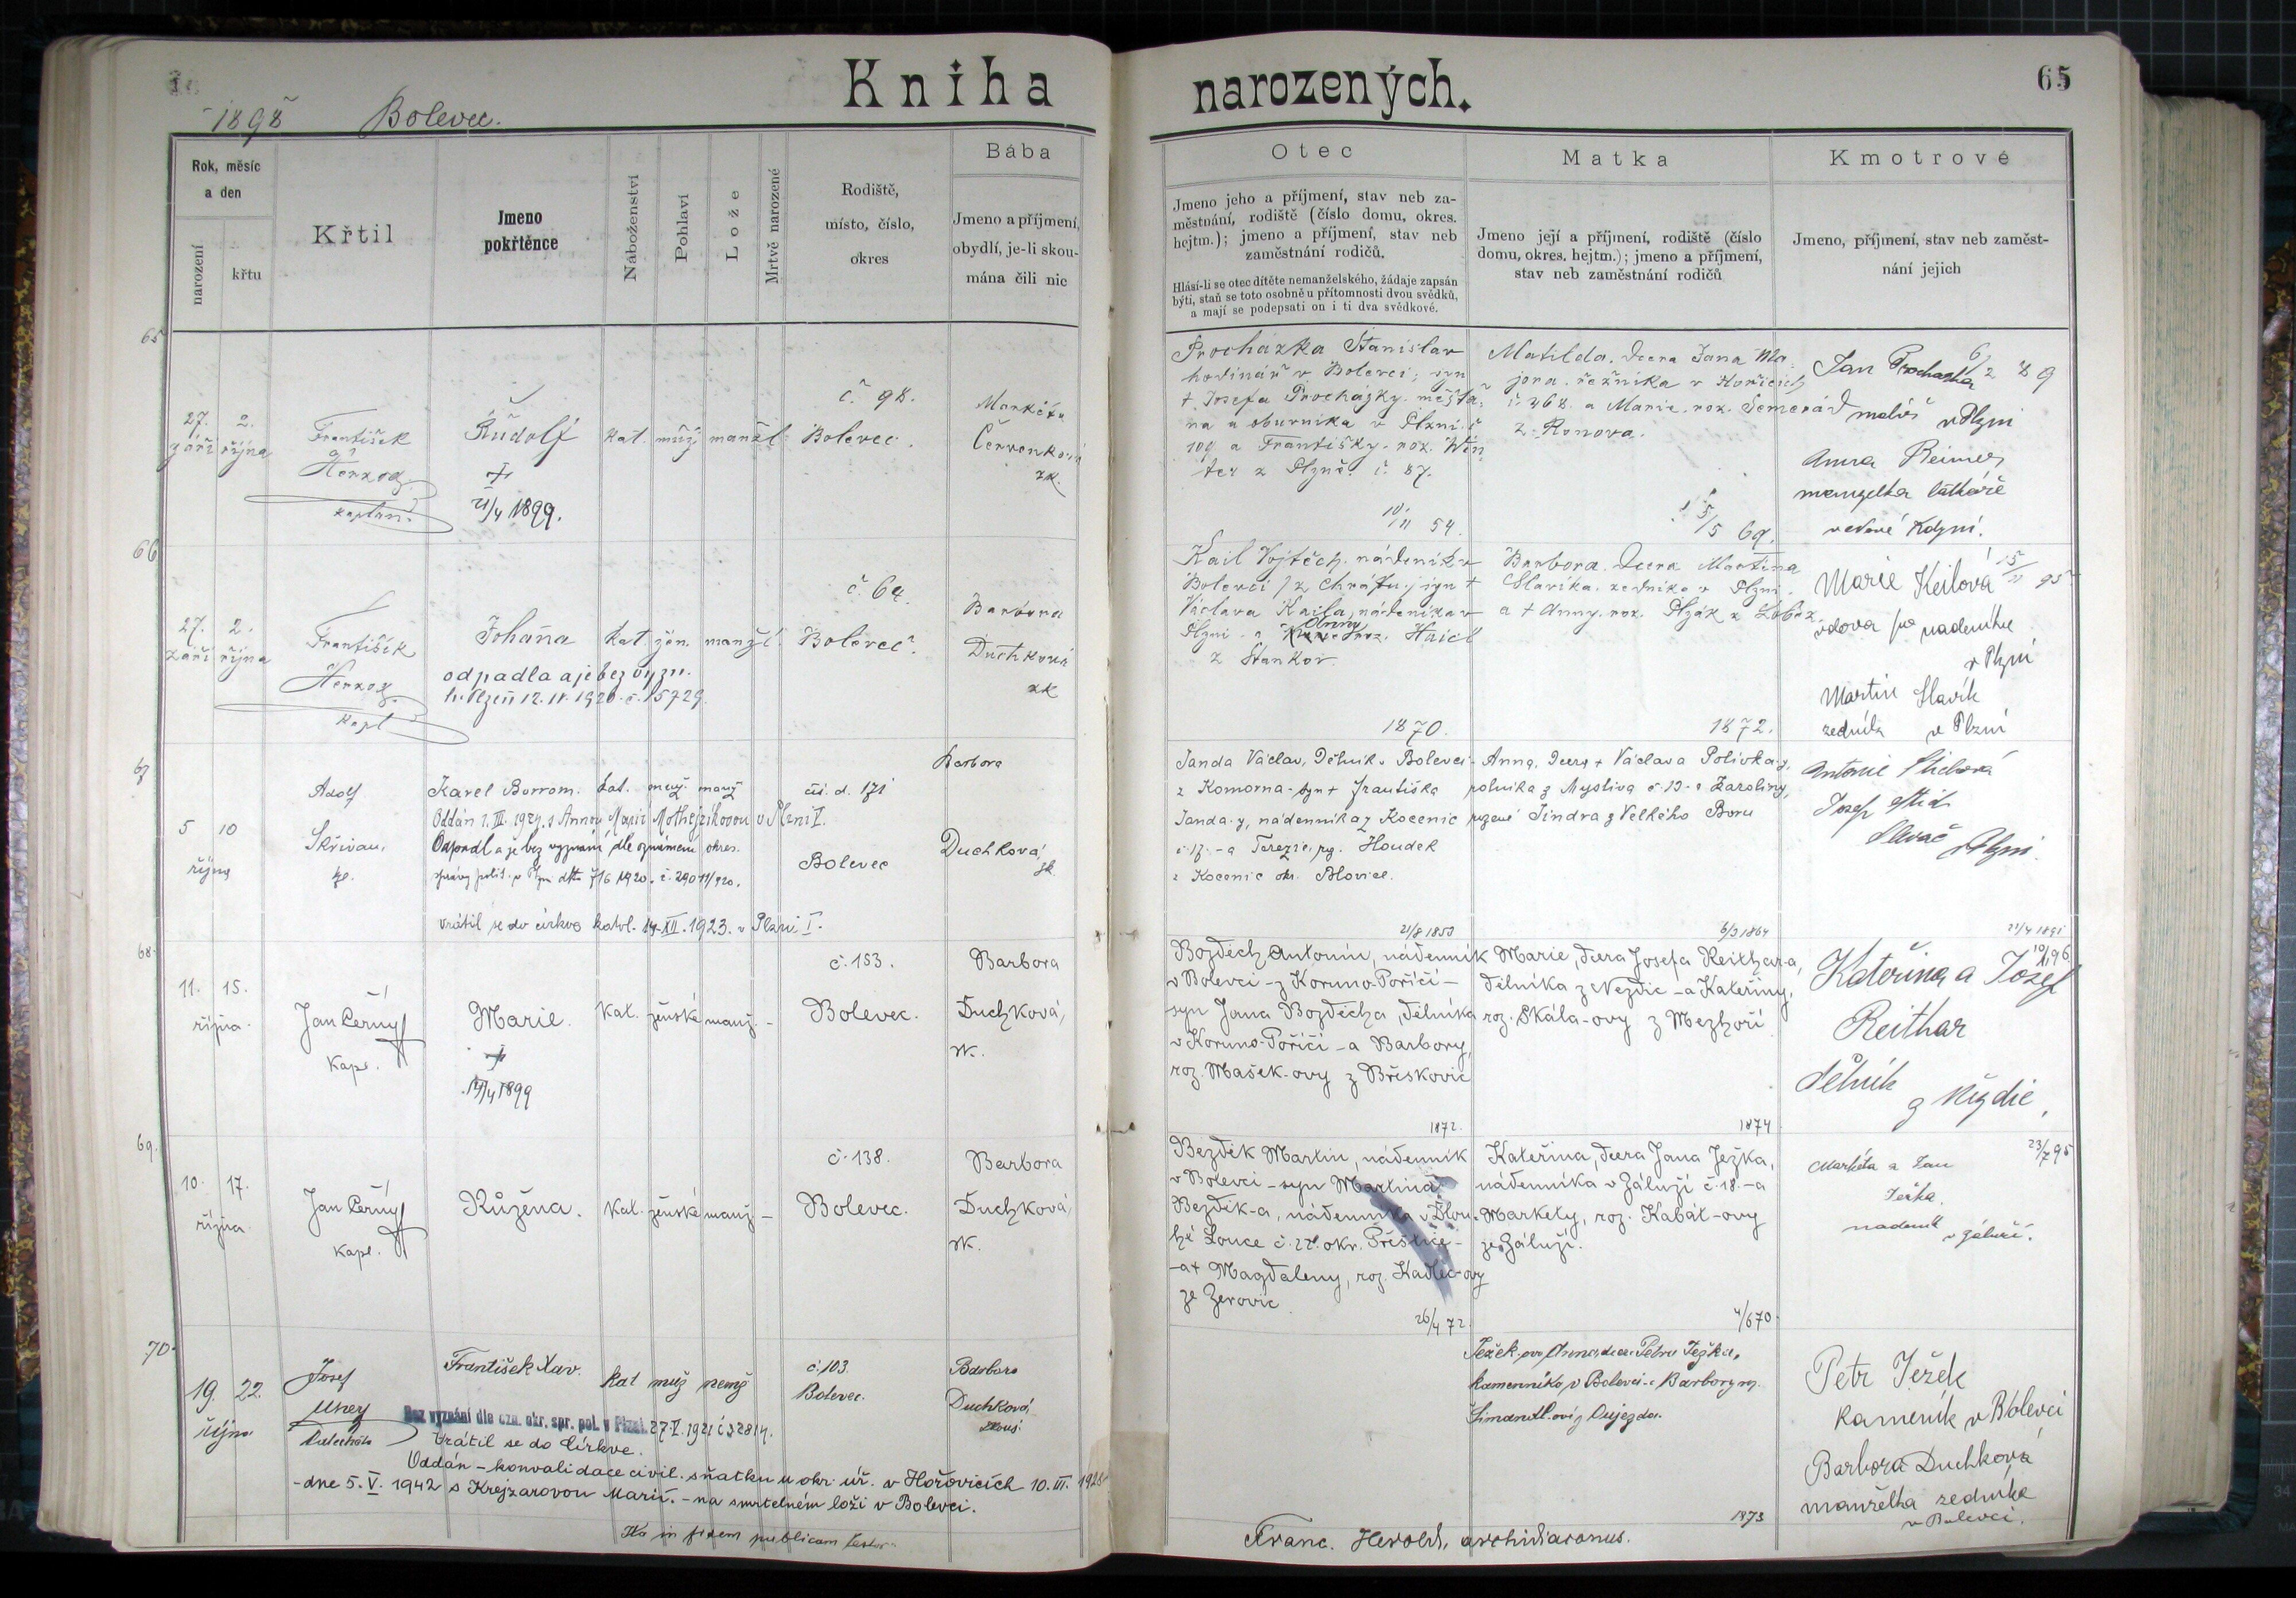 Kniha
narozených.
65
1898 Bolevec.
Rok, měsíc
a den
narození
křtu
Křtil
Jmeno
pokřtěnce
Náboženství
Pohlaví
Lože
Mrtvě narozené
Rodiště,
místo, číslo,
okres
Bába
Jmeno a příjmení,
obydlí, je-li skou-
mána čili nic
Otec
Jmeno jeho a příjmení, stav neb za-
městnání, rodiště (číslo domu, okres.
hejtm.); jmeno a příjmení, stav neb
zaměstnání rodičů.
Hlásí-li se otec dítěte nemanželského, žádaje zapsán
býti, staň se toto osobně u přítomnosti dvou svědků,
a mají se podepsati on i ti dva svědkové.
Matka
Jmeno její a příjmení, rodiště (číslo
domu, okres. hejtm.); jmeno a příjmení,
stav neb zaměstnání rodičů
Kmotrové
Jmeno, příjmení, stav neb zaměst-
nání jejich
65
27. 2.
září října
František
Herzog
kaplan.
Rudolf
21/4 1899.
kat. muž manžl.
č. 98.
Bolevec.
Markéta
Červenková
zk.
Procházka Stanislav
hodinář v Bolevci; syn
† Josefa Procházky. měšťa-
na a obuvníka v Plzni č.
109 a Františky. roz. Win
ter z Plzně. č. 87.
10/11 54.
Matilda. dcera Jana Ma
jora. řezníka v Hořicích
č. 268. a Marie. roz. Semerád
z Ronova.
5/5 69.
Jan Procházka
malíř v Plzni
Anna Reimer
manželka
v Nové Kdyni.
66
27. 2.
září října
František
Herzog.
kapl
Johana
odpadla a je bez vyzn.
kat. žen. manžl.
č. 64.
Bolevec.
Barbora
Duchková
zk
Kail Vojtěch. nádeník v
Bolevci / z Chrástu; syn †
Václava Kaila, nádeníka v
Plzni a Anny roz. Haicl
z Stankov.
1870.
Barbora. Dcera Martina
Slavíka. zedníka v Plzni.
a † Anny. roz. Plzák z Lobez.
1872.
Marie Keilová 15/11 95
vdova po nadeníku
v Plzni
Martin Slavík
zedník v Plzni
67
5 10
října
Adolf
Skřivan,
Karel Borrom. kat. muž. manž
Oddán 1. III. 1924. s Annou Marií v Plzni I.
Odpadl a je bez vyznání dle oznámení okres.
vrátil se do církve katol. 14. XII. 1923. v Plzni I.
čís. d. 171
Bolevec
Barbora
Duchková,
zk.
Janda Václav, Dělník v Bolevci
z Komorna - syn † Františka
Janda-y, nádenníka z Kocenic
č. 17. - a Terezie, roz. Houdek
z Kocenic okr. Blovice.
21/8 1859
Anna, Dcera † Václava Polívka-y,
polníka z Myslíva č. 13 - a Karoliny,
rozené Jindra z Velkého Boru
6/3 1864
Antonie
Josef
v Plzni.
21/4 1891
68.
11. 15.
října.
Jan Černý
kapl.
Marie.
1899
kat. ženské manž. -
č. 153.
Bolevec.
Barbora
Duchková,
zk.
Bozděch Antonín, nádenník
v Bolevci - z Koruno-Poříčí -
syn Jana Bozděcha, dělníka
v Koruno-Poříčí - a Barbory,
roz. Mašek-ovy z Břískovic
1872.
Marie, dcera Josefa Reithara,
dělníka z Nezdic - a Kateřiny,
roz. Skála-ovy z Mezhoří
1874
Kateřina a Josef
Reithar
dělník
z Nezdic,
69.
10. 17.
října.
Jan Černý
kapl.
Růžena. kat. ženské manž. -
č. 138.
Bolevec.
Barbora
Duchková,
zk.
Bezděk Martin, nádenník
v Bolevci - syn Martina
Bezděk-a, nádenníka v Dlou-
hé Louce č. 22. okr. Přeštice -
- a † Magdaleny, roz. Kadlec-ovy
ze Zerovic.
26/4 72.
Kateřina, dcera Jana Ježka,
nádenníka v Záluží č. 18. - a
Markety, roz. Kabát-ovy
ze Záluží.
4/6 70
Markéta a Jan 23/7 95
Ježka.
nadeník
v Záluží.
70.
19. 22.
října
Josef
František Xav. kat muž nemž
č. 103.
Bolevec.
Barbora
Duchková
zkouš.
Bez vyznání dle ozn. okr. spr. pol. v Plzni. 27. V. 1921 č 32814.
Vrátil se do Církve.
Oddán - konvalidace civil. sňatku u okr. úř. v Hořovicích 10. III. 1928
- dne 5. V. 1942 s Krejzarovou Marií. - na smrtelném loži v Bolevci.
Ježek-ova Anna dcera Petra Ježka,
kameníka v Bolevci a Barbory roz.
Šimandl-ovi z Oujezda.
1873
Petr Ježek
kameník v Bolevci
Barbora Duchková
manželka zedníka
v Bolevci.
Ita in fidem publicam testor
Franc. Herold, archidiaconus.